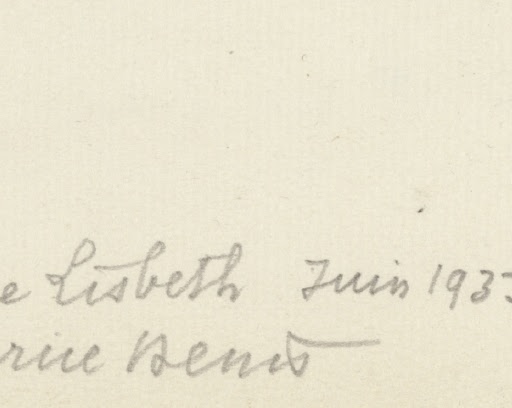 e Lisbeth Juin 193
rice Denis